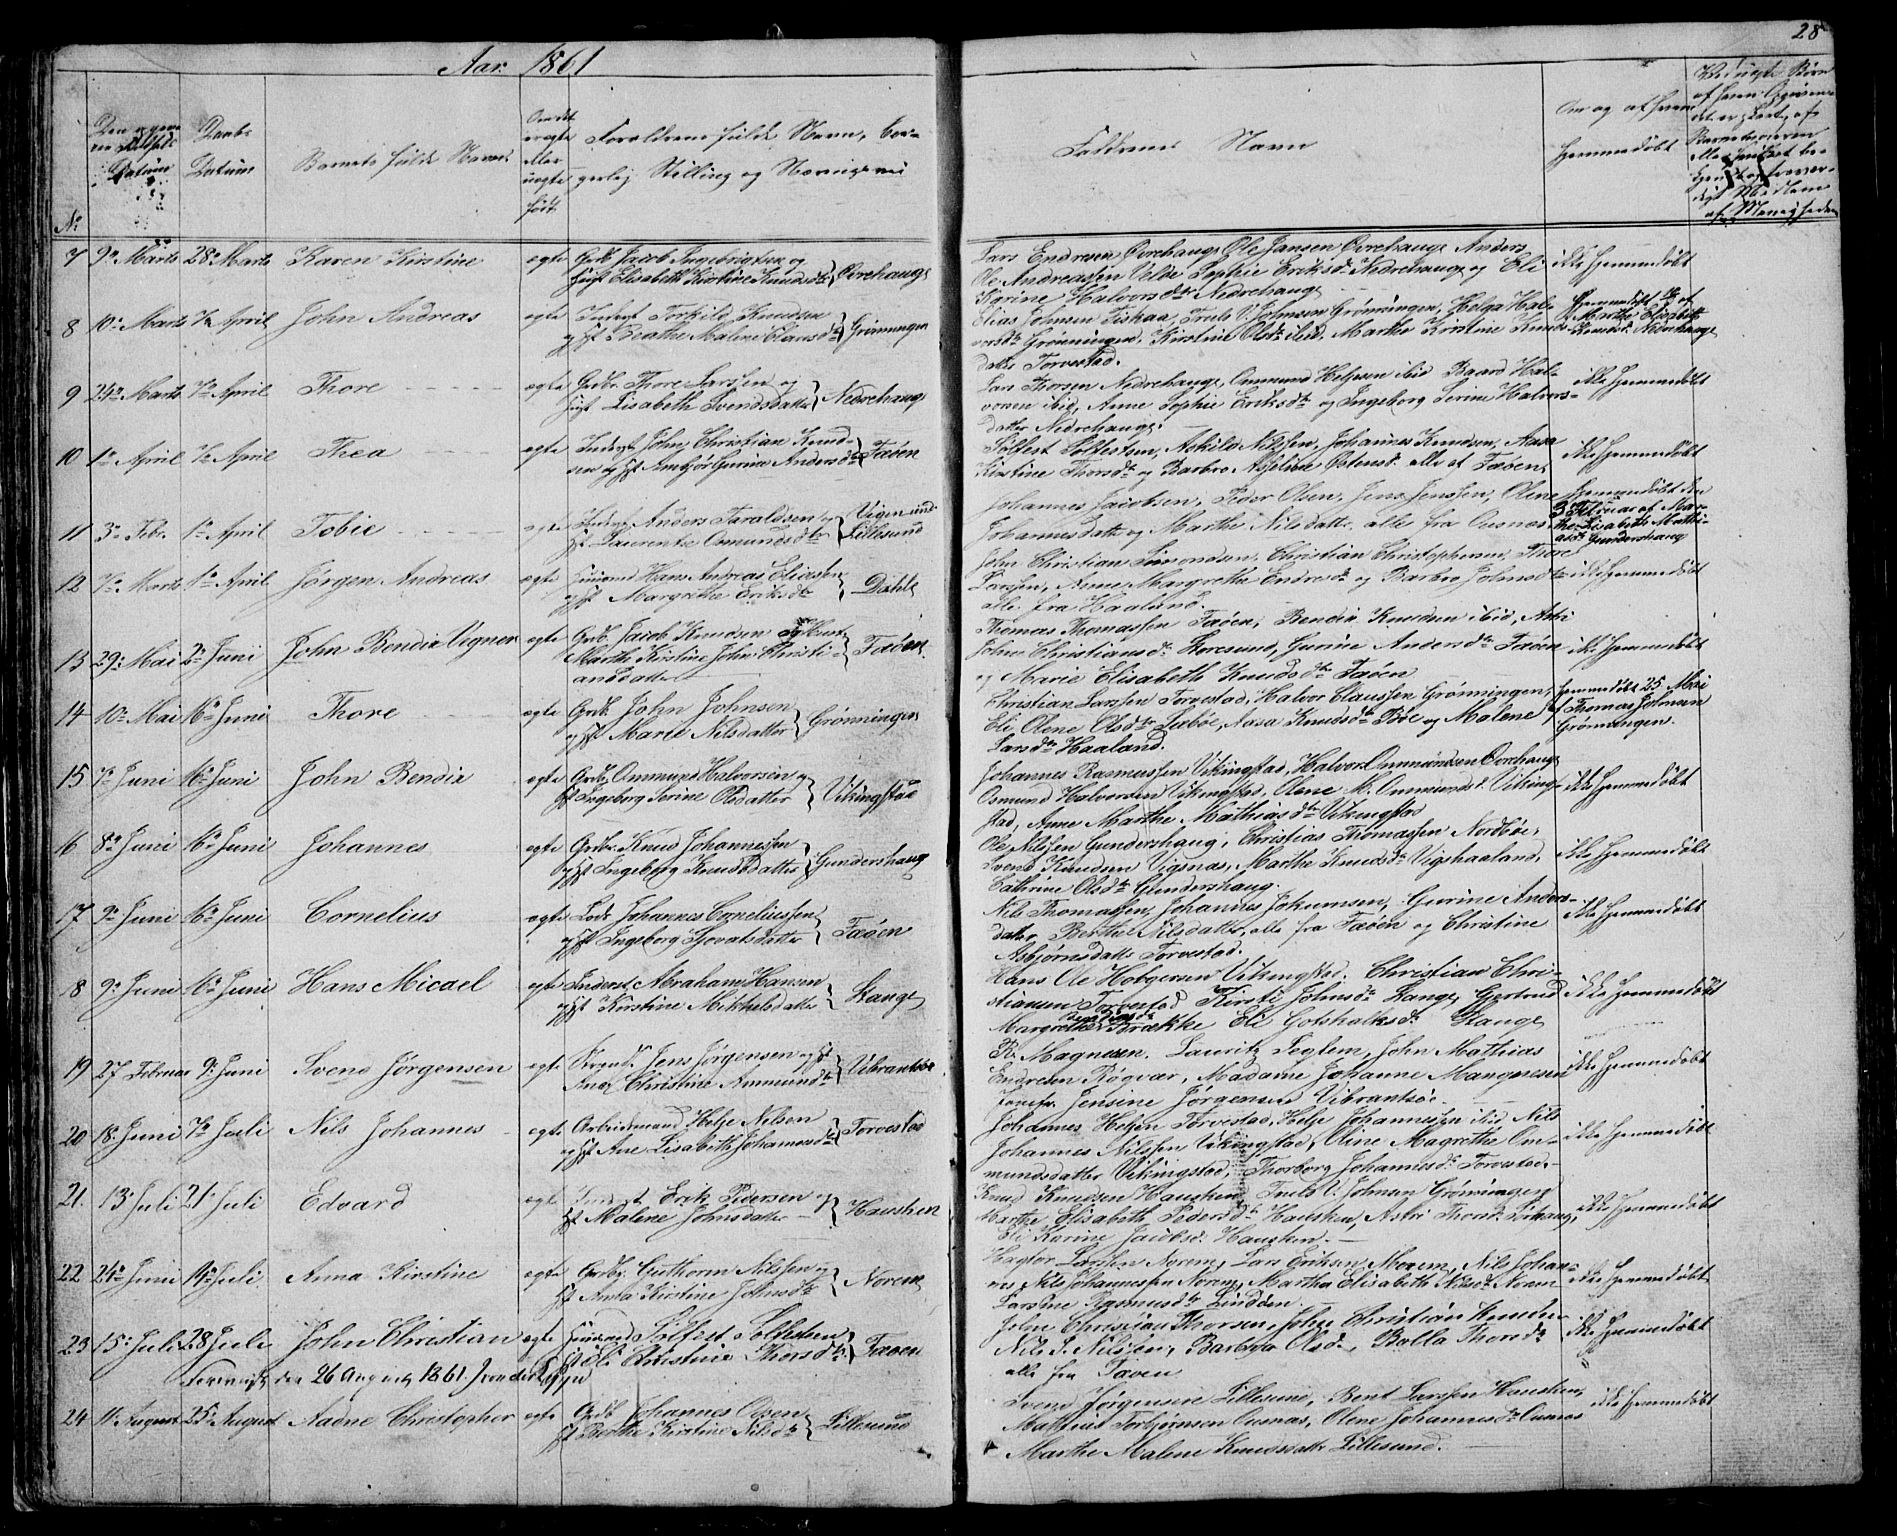 28
Aar 1861
No
Døbe Datum
Barnets fulde Navn
Forældrenes fulde Navn, Bor-
gerlig Stilling og Næringsvei
Faddernes Navn
Om og af hvem
hjemmedøbt
7 9de Marts 28de Marts Karen Kirstine ægte Grb. Jacob Ingebrigtsen og
Hust Elisabeth Kirstine Knudsdtr Øvrehauge
Lars Endresen Øvrehauge, Ole Jansen Øvrehauge Anders
Ole Andreassen Velde Sophie Eriksdtr Nedrehauge og Eli
Karine Halvorsdtr Nedrehauge
ikke hjemmedøbt
8 10de Marts 7de April John Andreas ægte Inderst Torkild Knudsen
og Hst Beathe Malene Clausdtr Grønningen
Elias Johnsen Fiskaa, Truls V. Johnsen Grønningen, Helga Hal-
vorsdtr Grønningen, Kirstine Olsdtr ibid, Marthe Kirstine Knuds-
datter Torvestad.
Hjemmedøbt af
Marthe Elisabeth
Knudsd. Nedrehauge
9 24de Marts 7de April Thore ægte Grdbr. Thore Larssen og
Hust Lisabeth Svendsdatter Nedrehauge
Lars Thorsen Nedrehauge, Ommund Helgesen ibid Baard Hal-
vorsen ibid, Anne Sophie Eriksdtr og Ingeborg Serine Halvors-
datter Nedrehauge
ikke hjemmedøbt
10 1ste April 7de April Thea ægte Inderst John Christian Knud-
sen og Hst Anbjør Gurine Andersdtr Fæøen
Solfest Solfestsen, Askild Nilssen, Johannes Knudsen, Aasa
Kirstine Thorsdtr og Barbro Asseline Østensd. alle af Fæøen
ikke hjemmedøbt
11 3de Febr. 1ste April Tobie ægte Inderst Anders Taraldsen og
Hst Laurentse Osmundsdtr Lillesund
Johannes Jacobsen, Peder Olsen, Jens Jenssen, Olene
Johannesdatter og Marthe Nilsdatter, alle fra Ousnæs
Hjemmedøbt den
3 Februar af Mar-
the Lisabeth Mathi-
asd. Gundershaug
12 7de Marts 1ste April Jørgen Andreas ægte Huusmd Hans Andreas Eliassen
og Hst Margrethe Eriksdtr Dahle
John Christian Simondsen, Christian Christophersen, Thore
Larssen, Anne Margrethe Endresd. og Barbro Johnsdtr
alle fra Haaland.
ikke hjemmedøbt
13 29de Mai 2de Juni John Bendix Vigner ægte Grdb. Jacob Knudsen og Hust
Marthe Kirstine John Christi-
ansdatter Fæøen
Thomas Thomassen Fæøen, Bendix Knudsen ibid, Astri
John Christiansd. Storesund, Gurine Andersdtr Fæøen
og Marie Elisabeth Knudsdtr Fæøen
ikke hjemmedøbt
14 10de Mai 16de Juni Thore ægte Grdb. John Johnsen
og Hst Marie Nilsdatter Grønningen
Christian Larssen Torvestad, Halvor Claussen Grønningen,
Eli Olene Olsdtr Sæbøe, Aasa Knudsdtr Bøe og Malene
Larsdtr Haaland.
hjemmedøbt 25 Mai
af Thomas Johnsen
Grønningen.
15 7de Juni 16de Juni John Bendix ægte Grdb. Ommund Halvorsen og
Hst Ingeborg Serine Olsdatter Vikingstad
Johannes Rasmussen Vikingstad, Halvor Ommundsen Øvrehauge
Osmund Halvorsen Vikingstad, Olene M. Ommundsd. Viking-
stad, Anne Marthe Mathiasdtr Vikingstad
ikke hjemmedøbt
16 8de Juni 16de Juni Johannes ægte Grdbr. Knud Johannessen
og Hst Ingeborg Knudsdatter Gundershaug
Ole Nilssen Gundershaug, Christias Thomassen Nordbøe,
Svend Knudsen Vigsnæs, Marthe Knudsdtr Vigshaaland,
Cathrine Olsdtr Gundershaug.
ikke hjemmedøbt
17 9de Juni 16de Juni Cornelius ægte Lods Johannes Corneliussen
og Hst Ingeborg Sjovatsdatter Fæøen
Nils Thomassen, Johannes Johannsen, Gurine Anders-
datter, Berthe Nilsdatter, alle fra Fæøen og Christine
Asbjørnsdatter Torvestad.
ikke hjemmedøbt
18 9de Juni 16de Juni Hans Micael ægte Inderst Abraham Hansen
og Hst Kirstine Mikkelsdatter Stange
Hans Ole Holgersen Vikingstad, Christian Chri-
stiansen Torvestad Kirsti Johnsdtr Stange, Gertrud
Margrethe Brække Eli Gotskalksd. Stange
ikke hjemmedøbt
19 27 Februar 9de Juni Svend Jørgensen ægte Strands. Jens Jørgensen og Hst
Ane Christine Ammundsdtr Vibrantsøe
R. Magnesen, Lauritz Seglem, John Mathias
Endresen Røgvær, Madame Johanne Mangnesen
Jomfr. Jensine Jørgensen Vibrantsøe.
ikke hjemmedøbt
20 18de Juni 7de Juli Nils Johannes ægte Arbeidsmand Helje Nilsen
og Hst Ane Lisabeth Johannesdtr Torvestad
Johannes Heljen Torvestad, Helje Johannessen ibid Nils
Johannes Nilssen Vikingstad, Oline Magrethe Om-
mundsdatter Vikingstad, Thorborg Johannesd. Torvestad.
ikke hjemmedøbt
21. 13de Juli 21de Juli Edvard ægte Inderst Erik Pedersen og
Hst Malene Johnsdatter Hausken
Knud Knudsen Hausken, Truls V. Johnsen Grønningen
Marthe Elisabeth Pedersdtr Hausken, Astri Thorsd.
Eli Karine Jacobsd. Hausken.
ikke hjemmedøbt
22 24de Juni 14de Juli Anna Kirstine ægte Grdbr. Guthorm Nilssen og
Hst Anna Kirstine Johnsdtr Norem
Hagtor Larssen Norem, Lars Eriksen Norem, Nils Johan-
nes Nils Johannessen Norem, Martha Elisabeth Nilsd. Norem
Larsine Rasmusdtr Lindøen.
ikke hjemmedøbt
23 15de Juli 28 Juli John Christian ægte Huusmd Solfest Solfestsen
Hst Eli Christine Thorsdtr Fæøen
John Christian Thorsen, John Christian Knudsen
Nils S. Nilssen, Barbra Olsd., Balla Thorsdtr
alle fra Fæøen
ikke hjemmedøbt
den 26 August 1861
24 11 August 25de August Aadne Christopher ægte Grdb. Johannes Olsen
Hst Berthe Kirstine Nilsdtr Lillesund
Svend Jørgensen Lillesund, Bent Larssen Hausken,
Mathias Torbjørnsen Ousnæs, Olene Johannesdtr Ousnæs
Marthe Malene Knudsdatter Lillesund.
ikke hjemmedøbt